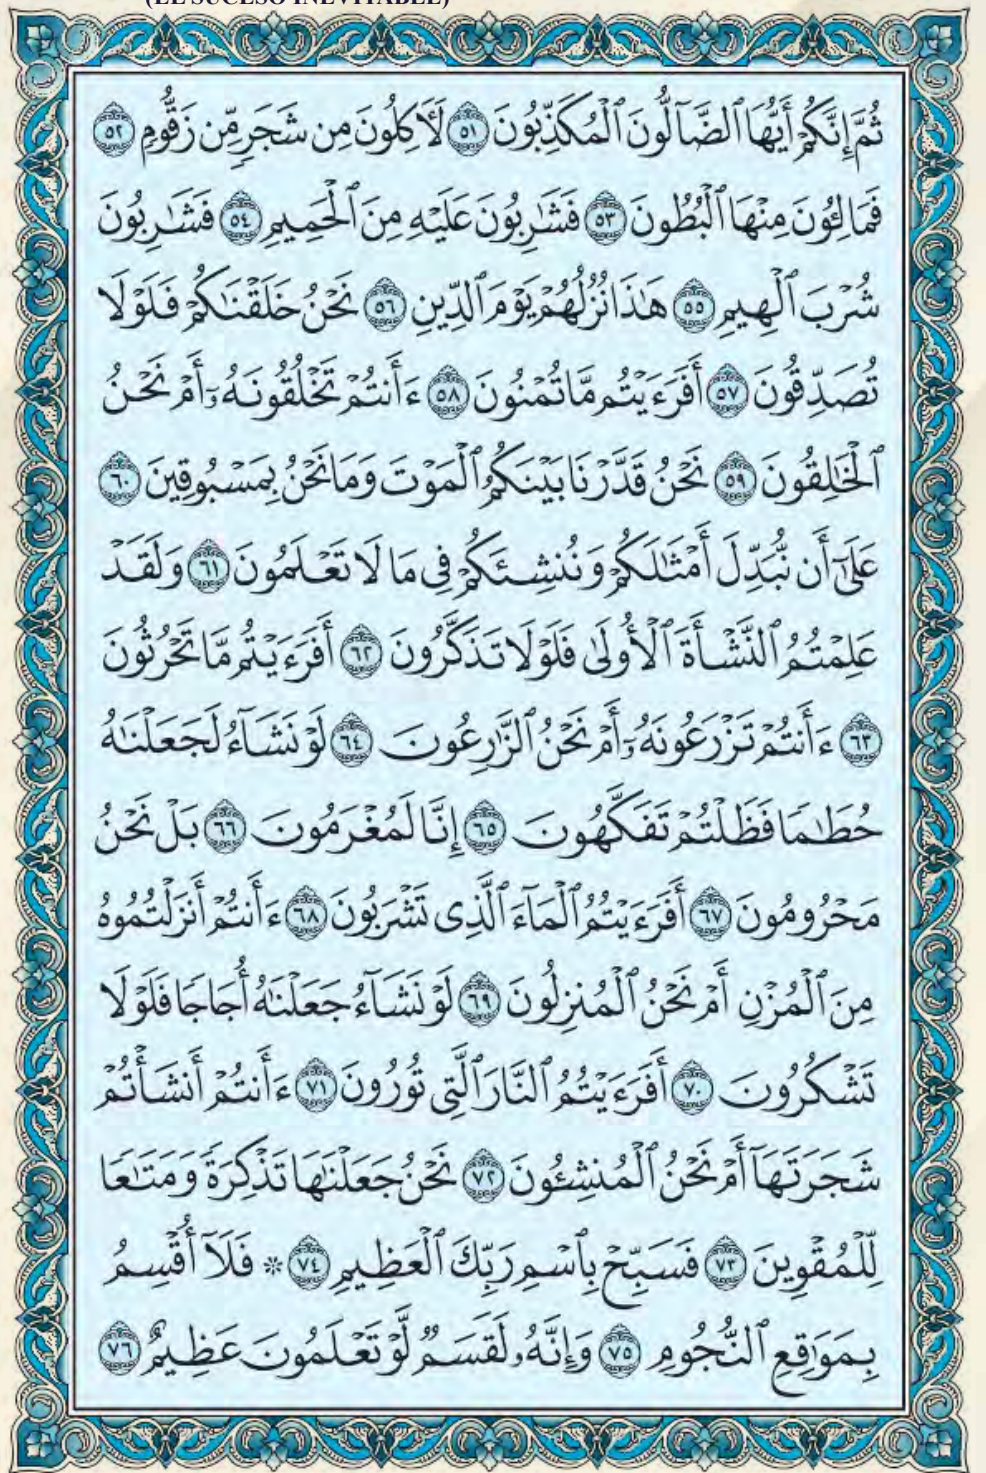 (EL SUCESO INEVITABLE)
ثُمَّ إِنَّكُمْ أَيُّهَا ٱلضَّآلُّونَ ٱلْمُكَذِّبُونَ ٥١ لَأَكِلُونَ مِن شَجَرٍ مِّن زَقُّومٍ ٥٢
فَمَالِـُٔونَ مِنْهَا ٱلْبُطُونَ ٥٣ فَشَٰرِبُونَ عَلَيْهِ مِنَ ٱلْحَمِيمِ ٥٤ فَشَٰرِبُونَ
شُرْبَ ٱلْهِيمِ ٥٥ هَٰذَا نُزُلُهُمْ يَوْمَ ٱلدِّينِ ٥٦ نَحْنُ خَلَقْنَٰكُمْ فَلَوْلَا
تُصَدِّقُونَ ٥٧ أَفَرَءَيْتُم مَّا تُمْنُونَ ٥٨ ءَأَنتُمْ تَخْلُقُونَهُۥٓ أَمْ نَحْنُ
ٱلْخَٰلِقُونَ ٥٩ نَحْنُ قَدَّرْنَا بَيْنَكُمُ ٱلْمَوْتَ وَمَا نَحْنُ بِمَسْبُوقِينَ ٦٠
عَلَىٰٓ أَن نُّبَدِّلَ أَمْثَٰلَكُمْ وَنُنشِئَكُمْ فِى مَا لَا تَعْلَمُونَ ٦١ وَلَقَدْ
عَلِمْتُمُ ٱلنَّشْأَةَ ٱلْأُولَىٰ فَلَوْلَا تَذَكَّرُونَ ٦٢ أَفَرَءَيْتُم مَّا تَحْرُثُونَ
٦٣ ءَأَنتُمْ تَزْرَعُونَهُۥٓ أَمْ نَحْنُ ٱلزَّٰرِعُونَ ٦٤ لَوْ نَشَآءُ لَجَعَلْنَٰهُ
حُطَٰمًا فَظَلْتُمْ تَفَكَّهُونَ ٦٥ إِنَّا لَمُغْرَمُونَ ٦٦ بَلْ نَحْنُ
مَحْرُومُونَ ٦٧ أَفَرَءَيْتُمُ ٱلْمَآءَ ٱلَّذِى تَشْرَبُونَ ٦٨ ءَأَنتُمْ أَنزَلْتُمُوهُ
مِنَ ٱلْمُزْنِ أَمْ نَحْنُ ٱلْمُنزِلُونَ ٦٩ لَوْ نَشَآءُ جَعَلْنَٰهُ أُجَاجًا فَلَوْلَا
تَشْكُرُونَ ٧٠ أَفَرَءَيْتُمُ ٱلنَّارَ ٱلَّتِى تُورُونَ ٧١ ءَأَنتُمْ أَنشَأْتُمْ
شَجَرَتَهَآ أَمْ نَحْنُ ٱلْمُنشِـُٔونَ ٧٢ نَحْنُ جَعَلْنَٰهَا تَذْكِرَةً وَمَتَٰعًا
لِّلْمُقْوِينَ ٧٣ فَسَبِّحْ بِٱسْمِ رَبِّكَ ٱلْعَظِيمِ ٧٤ ۞ فَلَآ أُقْسِمُ
بِمَوَٰقِعِ ٱلنُّجُومِ ٧٥ وَإِنَّهُۥ لَقَسَمٌ لَّوْ تَعْلَمُونَ عَظِيمٌ ٧٦